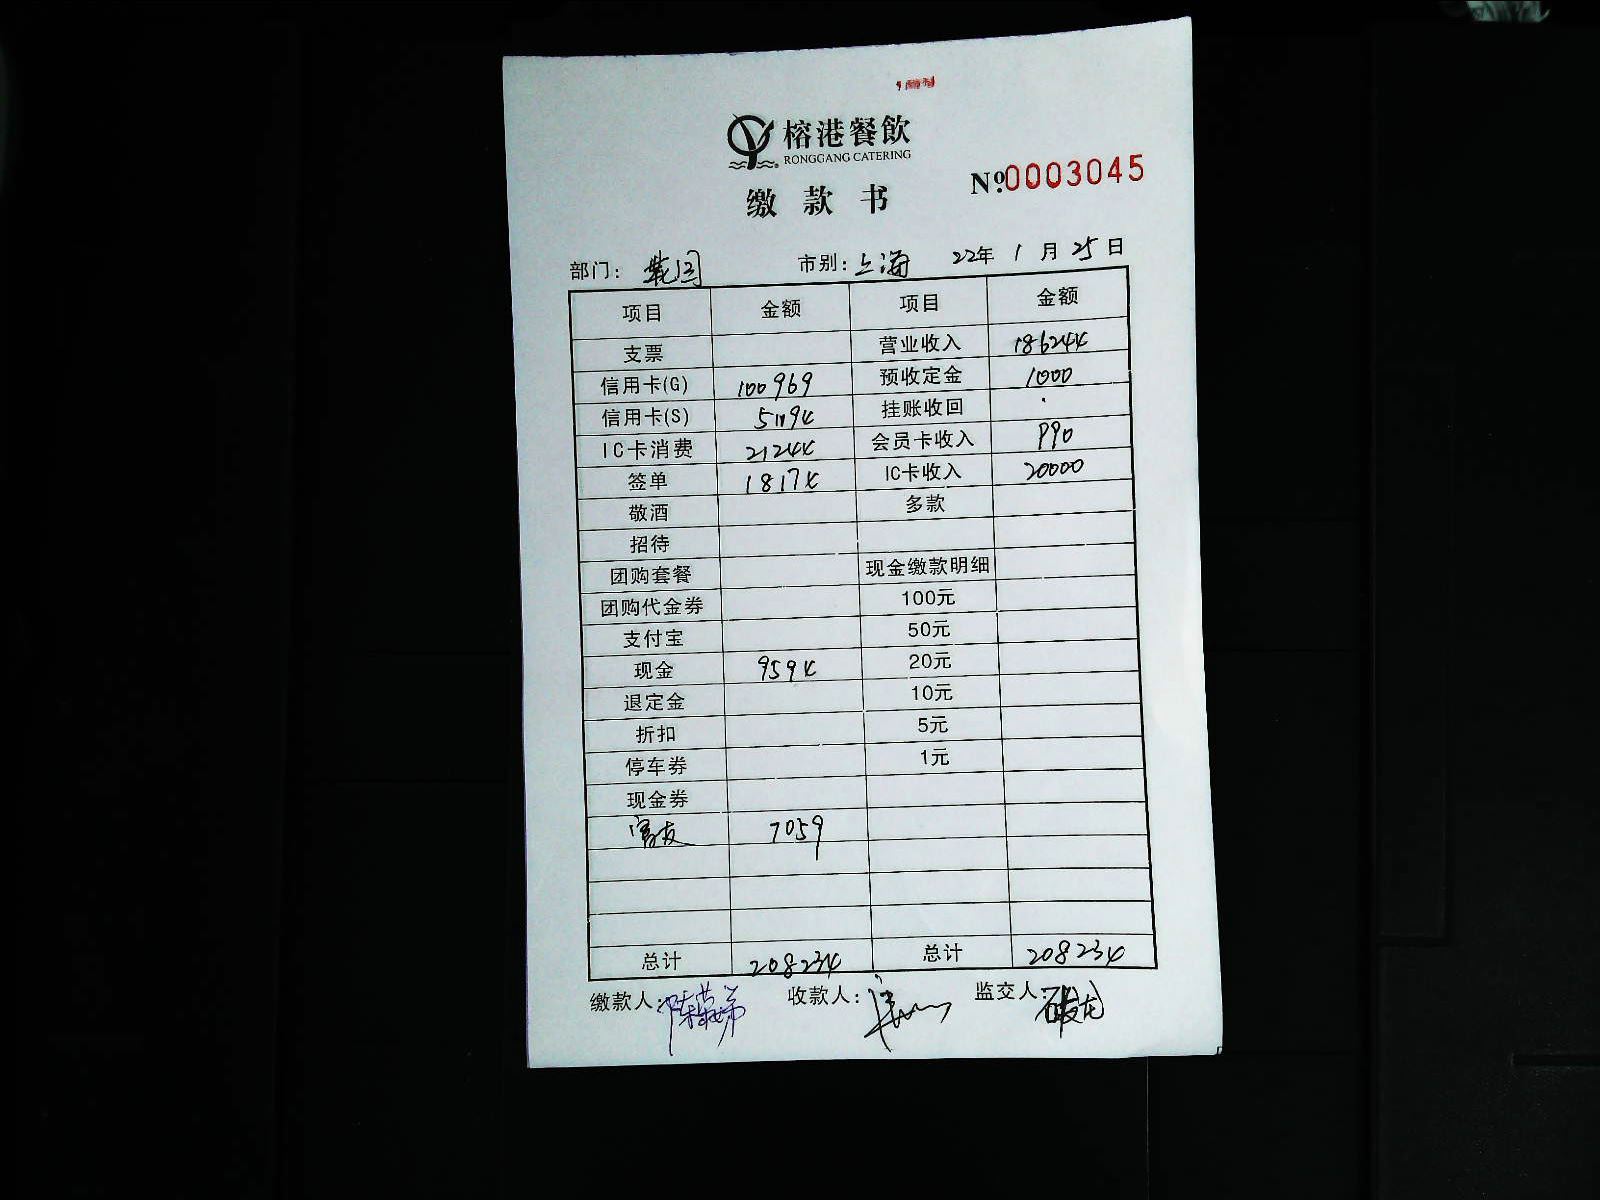 榕港餐飲
RONGGANG CATERING
缴款书
Nº.0003045
部门： 市别：上海 22年 1月 25日
项目 金额 项目 金额
支票 营业收入 186244
信用卡(G) 100969 预收定金 1000
信用卡(S) 51194 挂账收回
IC卡消费 21244 会员卡收入 990
签单 18174 IC卡收入 20000
敬酒 多款
招待
团购套餐 现金缴款明细
团购代金券 100元
支付宝 50元
现金 9594 20元
退定金 10元
折扣 5元
停车券 1元
现金券
7059
总计 208234 总计 208234
缴款人： 收款人： 监交人：